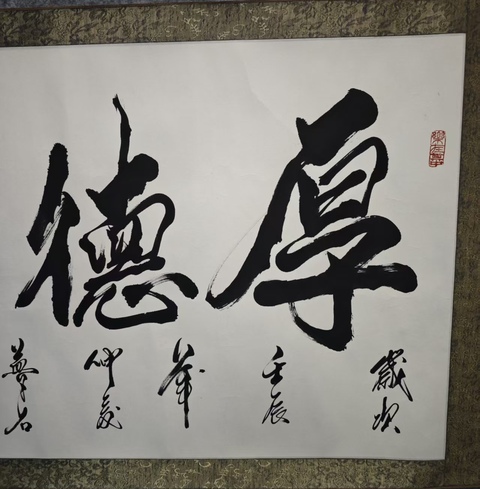 厚德
歲次
壬辰
年
仲夏